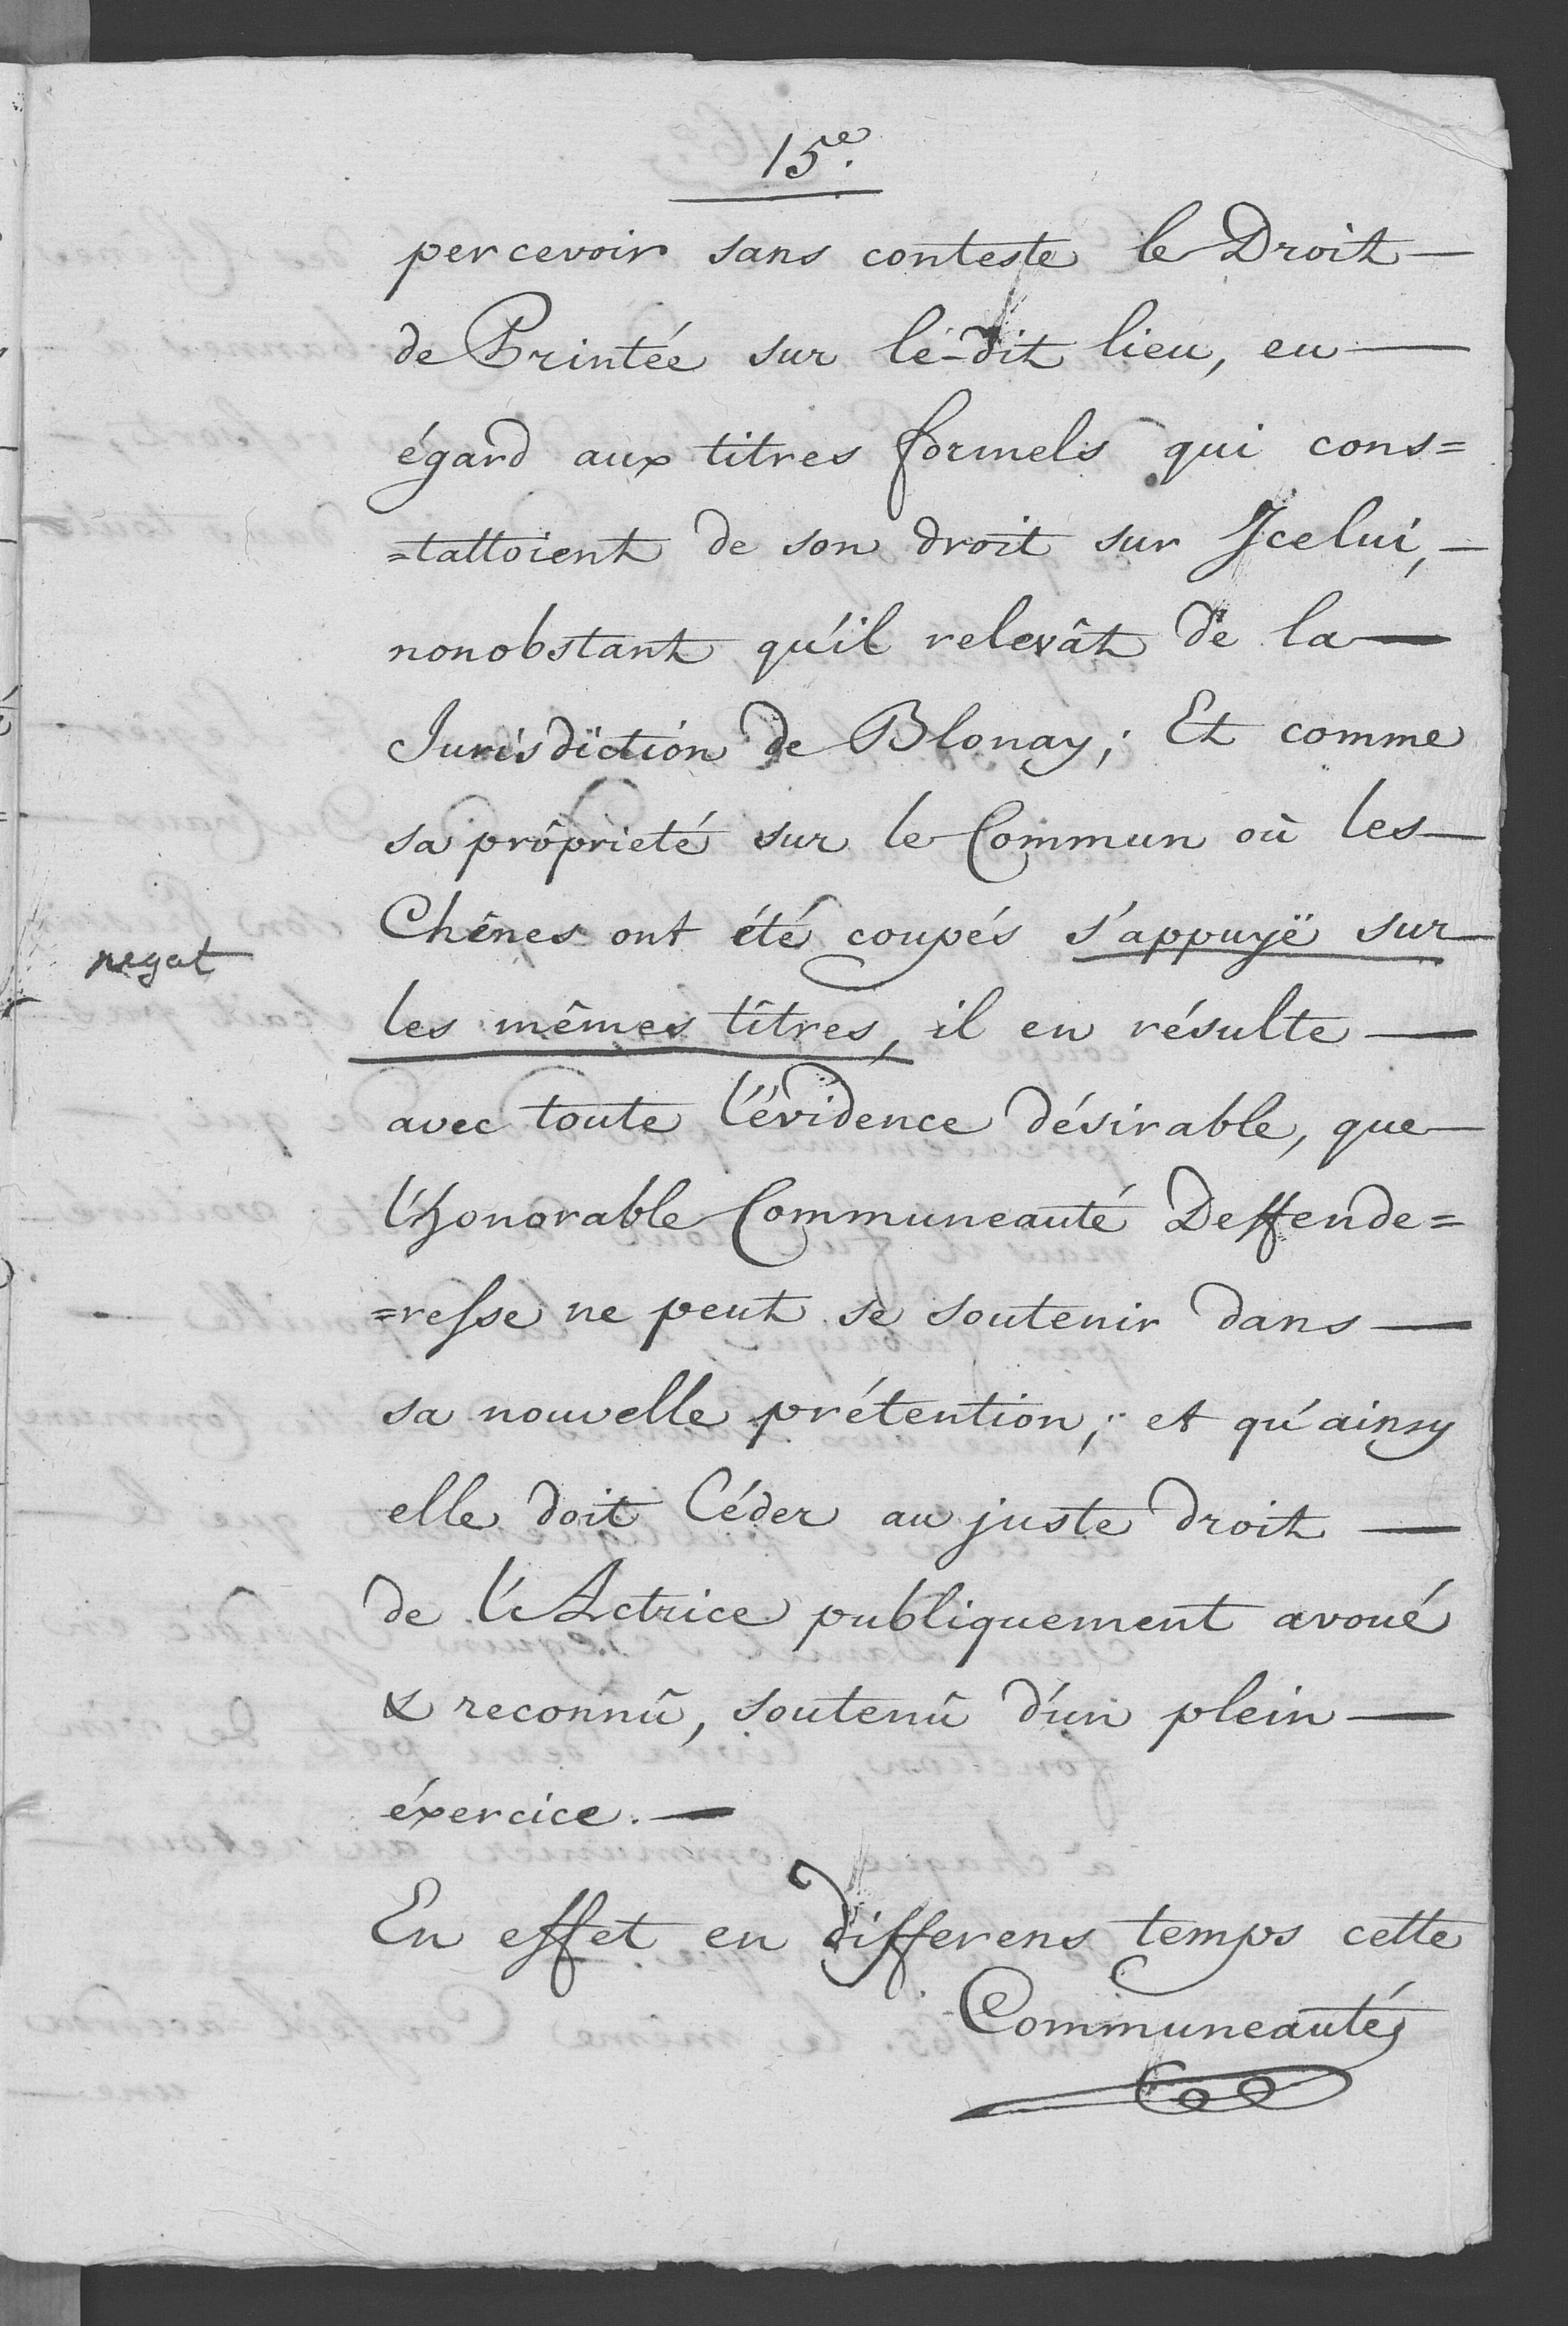 15e.
percevoir sans conteste le Droit —
de Printée sur lé-dit lieu, eu —
égard aux titres formels qui cons=
=tattoient de son droit sur Jcelui, —
nonobstant qu'il relevât de la —
Jurisdiction de Blonay; Et comme
sa prôprieté sur le Commun où les —
Chênes ont été coupés s'appuyë sur
negat
les mêmes tîtres, il en résulte —
avec toute l'évidence désirable, que —
l'honorable Communeauté Deffende=
=resse ne peut se soutenir dans —
sa nouvelle prétention; et qu'ainsy
elle doit Céder au juste droit —
de l'Actrice publiquement avoué
& reconnû, soutenû d'un plein —
éxercice. —
En effet en differens temps cette
Communeauté